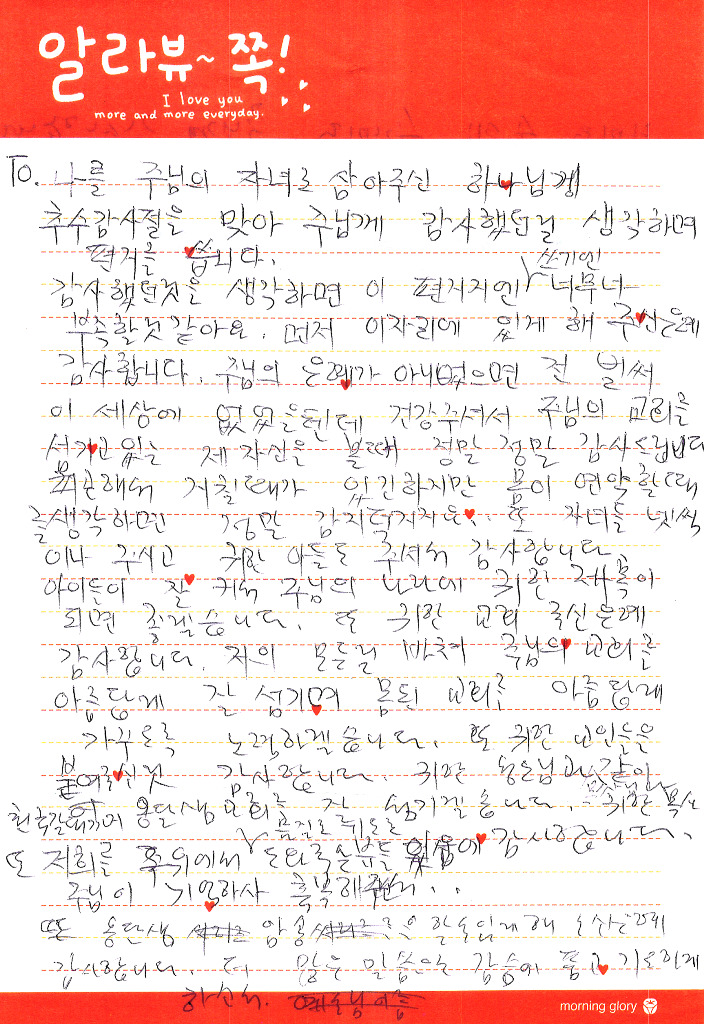 알라뷰~ 쪽!
I love you
more and more everyday.
To. 나를 주님의 자녀로 삼아주신 하나님께
추수감사절을 맞아 주님께 감사했던걸 생각하며
편지를 씁니다.
쓰기엔
감사했던것을 생각하면 이 편지지엔 너무나
부족할것 같아요. 먼저 이자리에 있게 해 주신은혜
감사합니다. 주님의 은혜가 아니었으면 전 벌써
이 세상에 없었을텐데 건강주셔서 주님의 교회를
섬기고 있는 제 자신을 볼때 정말 정말 감사드립니다
피곤해서 지칠때가 있긴하지만 몸이 연약할때
를생각하면 정말 또 자녀를 넷씩
이나 주시고 귀한 아들도 주셔서 감사합니다.
아이들이 잘 커서 주님의 나라에 귀한 재목이
되면 좋겠습니다. 또 귀한 교회 주신은혜
감사합니다. 저의 모든걸 바쳐 주님의 교회를
아름답게 잘 섬기며 몸된 교회를 아름답게
가꾸도록 노력하겠습니다. 또 귀한 교인들을
붙여주신것 감사합니다. 귀한 같이
천국갈때까지 잘 섬기겠습니다. 귀한
물질로 기도로
또 저희를 주위에서 도와주는분들 있음에 감사합니다.
주님이 기억하사 축복해주셔서..
또 동탄생 암송 할수있게해 주신은혜
감사합니다. 더 많은 말씀으로 가슴에 품고 기도하게
하소서.
morning glory